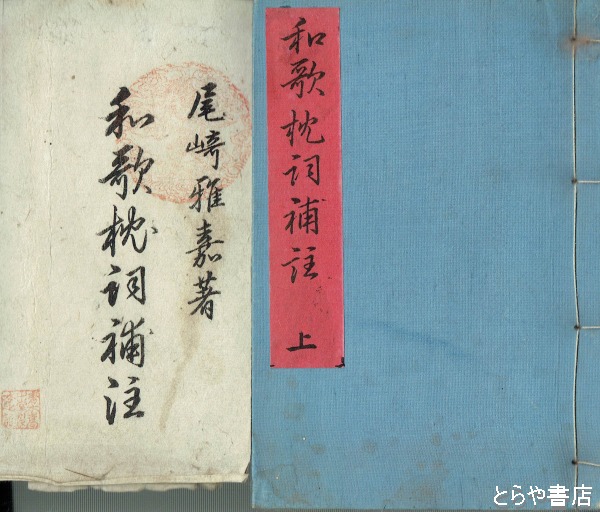 尾崎雅嘉著
和歌枕詞補注
和歌枕詞補註 上
とらや書店